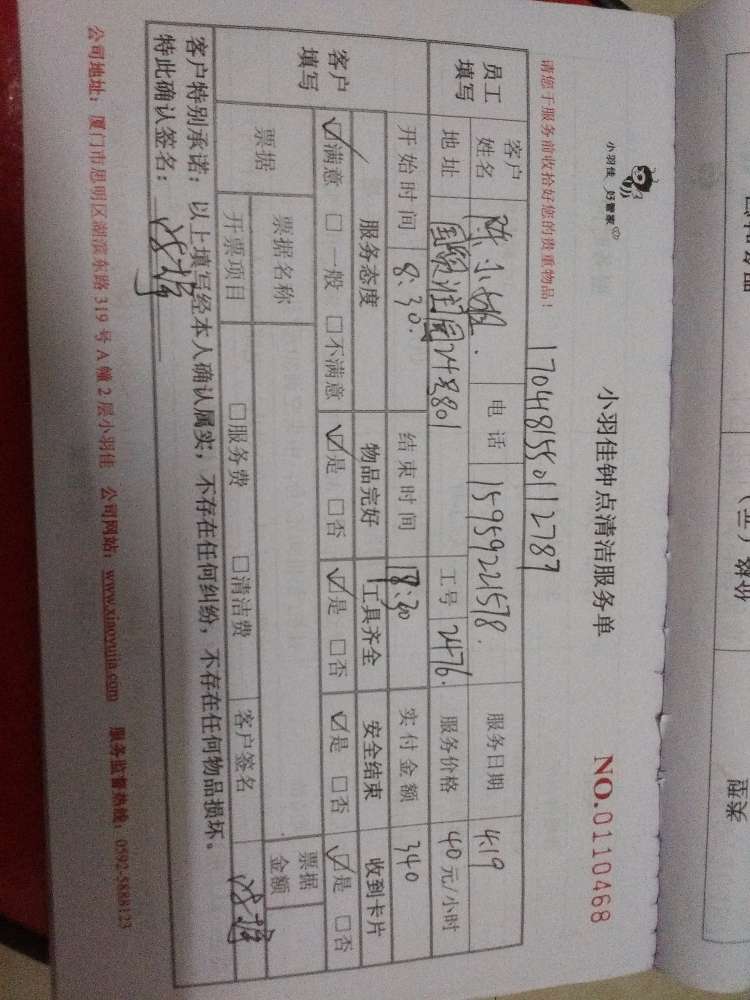 小羽佳 好管家
小羽佳钟点清洁服务单
NO.0110468
170481550112787
请您于服务前收拾好您的贵重物品！
员工填写 客户姓名 陈小姐. 电话 15959221578. 服务日期 4.19
地址 国贸润园24号801 工号 2476. 服务价格 40元/小时
开始时间 8:30. 结束时间 18:30 实付金额 340
客户填写 服务态度 物品完好 工具齐全 安全结束 收到卡片
☑满意 □一般 □不满意 ☑是 □否 ☑是 □否 ☑是 □否 ☑是 □否
票据 票据名称 票据金额
开票项目 □服务费 □清洁费 客户签名
客户特别承诺：以上填写经本人确认属实，不存在任何纠纷，不存在任何物品损坏。
特此确认签名：
公司地址：厦门市思明区湖滨东路319号A幢2层小羽佳 公司网站：www.xiaoyujia.com 服务监督热线：0592-5888123